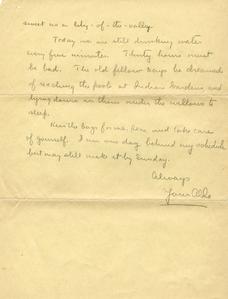 sweet as a lily-of-the-valley.
Today we are still drinking water
every five minutes. Thirty hours must
be bad. The old fellow says he dreamed
of reaching the pools at Indian Gardens and
lying down in them under the willows to
sleep.
Kiss the boys for me, Rene and take care
of yourself. I am one day behind my schedule
but may still make it by Sunday.
Always
Your